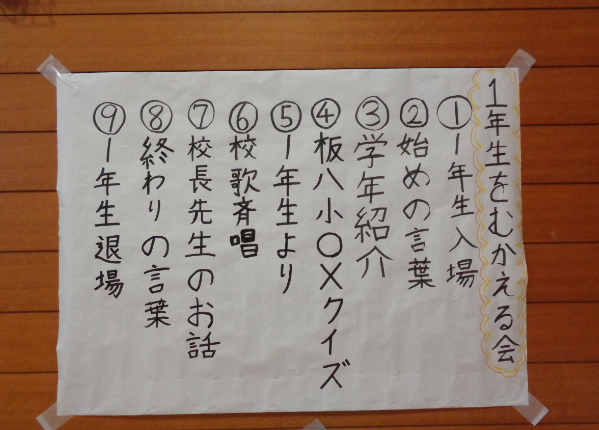 1年生をむかえる会
①1年生入場
②始めの言葉
③学年紹介
④板八小○×クイズ
⑤1年生より
⑥校歌斉唱
⑦校長先生のお話
⑧終わりの言葉
⑨1年生退場